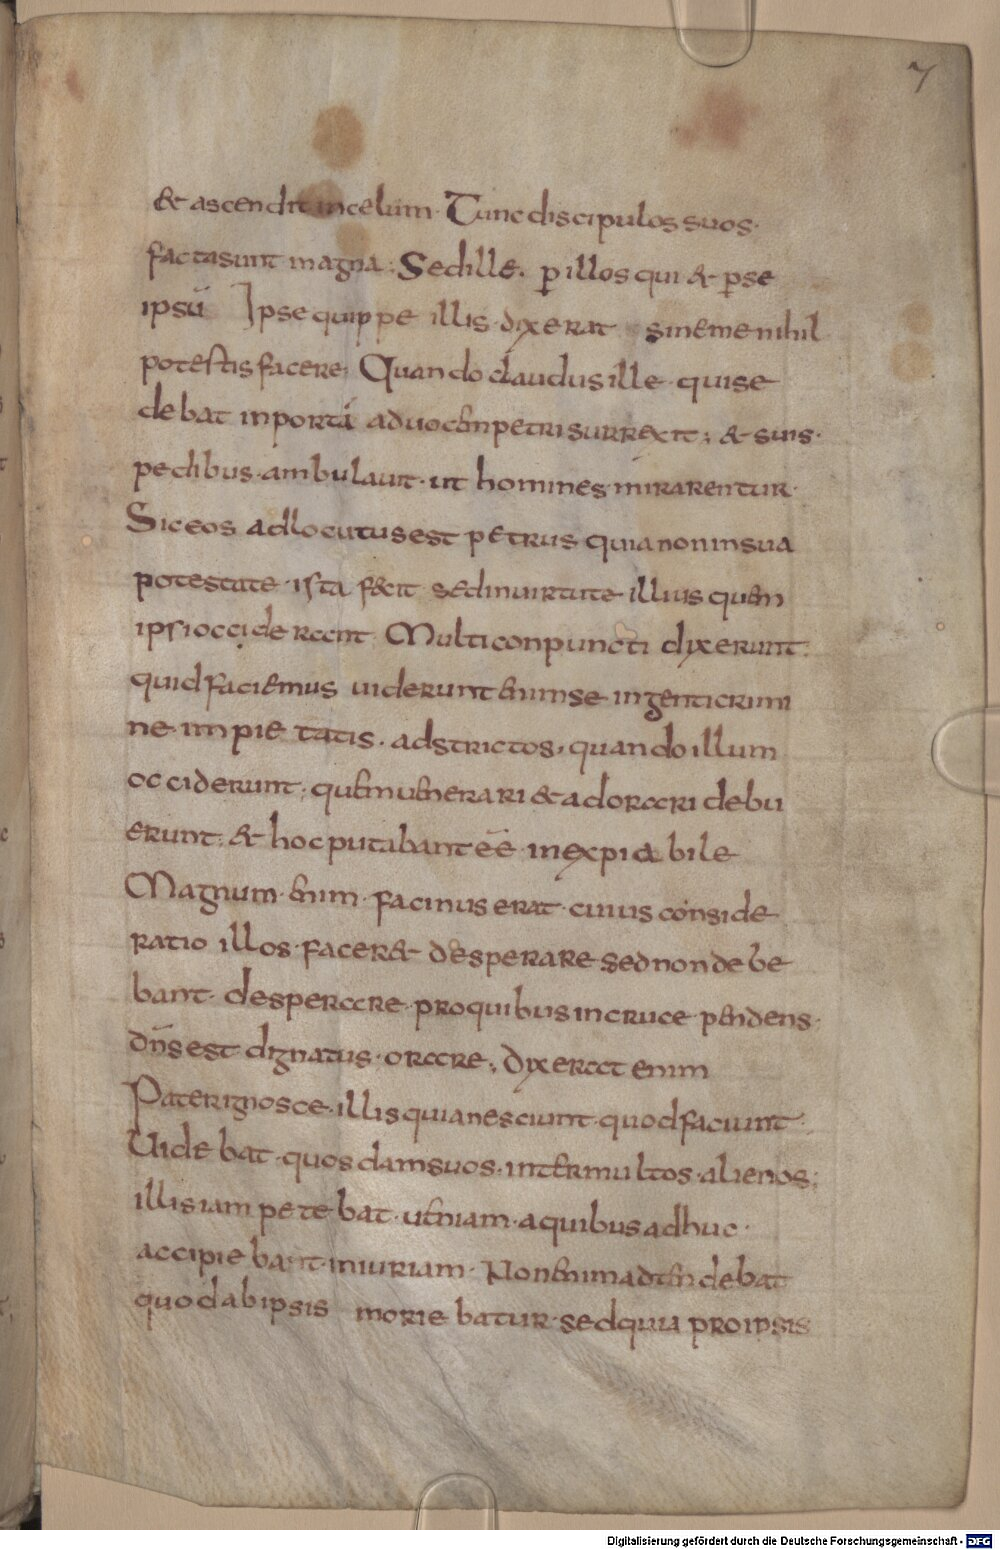 7
& ascendit incelum. Tunc discipulos suos.
facta sunt magna; Sed ille. p̄ illos qui & p̄ se
ipsū Ipse quippe illis. dixerat sine me nihil
potestis facere; Quando claudus ille. qui se
debat in portā ad uocem petri surrexit; & suis.
pedibus. ambulauit. ut homines mirarentur.
Sic eos adlocutus est petrus quia non in sua
potestate. ista fecit sed in uirtute illius quem
ipsi occiderant Multi conpuncti dixerunt.
quid faciemus uiderunt enim se ingenti crimi
ne impietatis. adstrictos. quando illum
occiderunt; quem uenerari & adorari debu
erunt; & hoc putabant eēē inexpiabile
Magnum. enim. facinus erat. cuius conside
ratio illos. facer& desperare sed non debe
bant. desperare. pro quibus in cruce pendens.
dn̄s est dignatus. orare; dixerat enim
Pater ignosce. illis quia nesciunt. quod faciunt.
Uidebat. quosdam suos. inter multos. alienos;
illis iam petebat. ueniam. a quibus adhuc.
accipiebant. iniuriam. Non enim adtendebat
quod ab ipsis moriebatur. sed quia pro ipsis
Digitalisierung gefördert durch die Deutsche Forschungsgemeinschaft - DFG